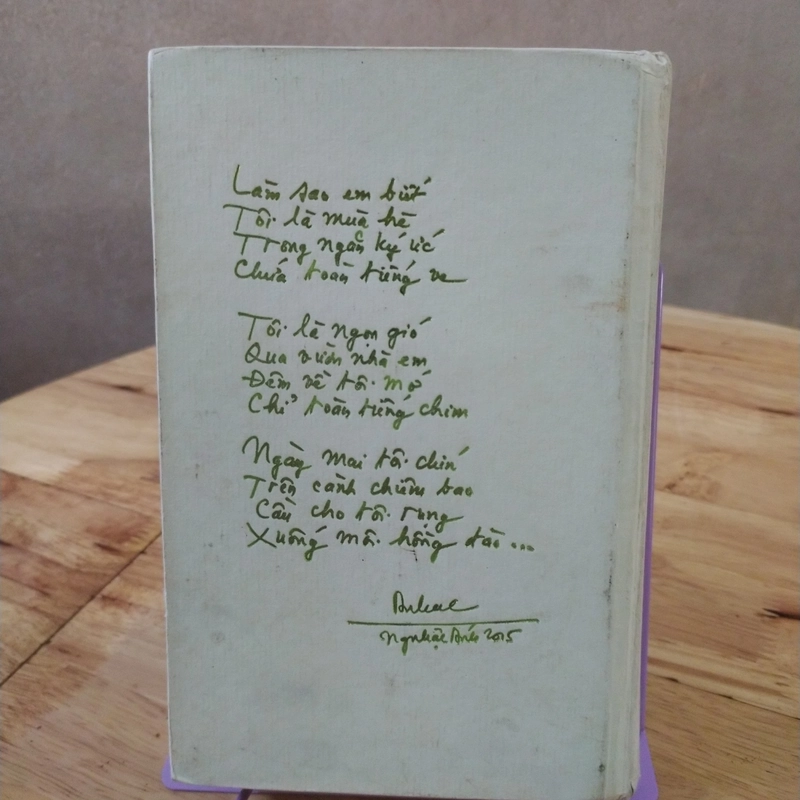 Làm sao em biết
Tôi là mùa hè
Trong ngăn ký ức
Chứa toàn tiếng ve
Tôi là ngọn gió
Qua vườn nhà em
Đêm về tôi mớ
Chỉ toàn tiếng chim
Ngày mai tôi chín
Trên cành chiêm bao
Cầu cho tôi rụng
Xuống môi hồng đào...
2015